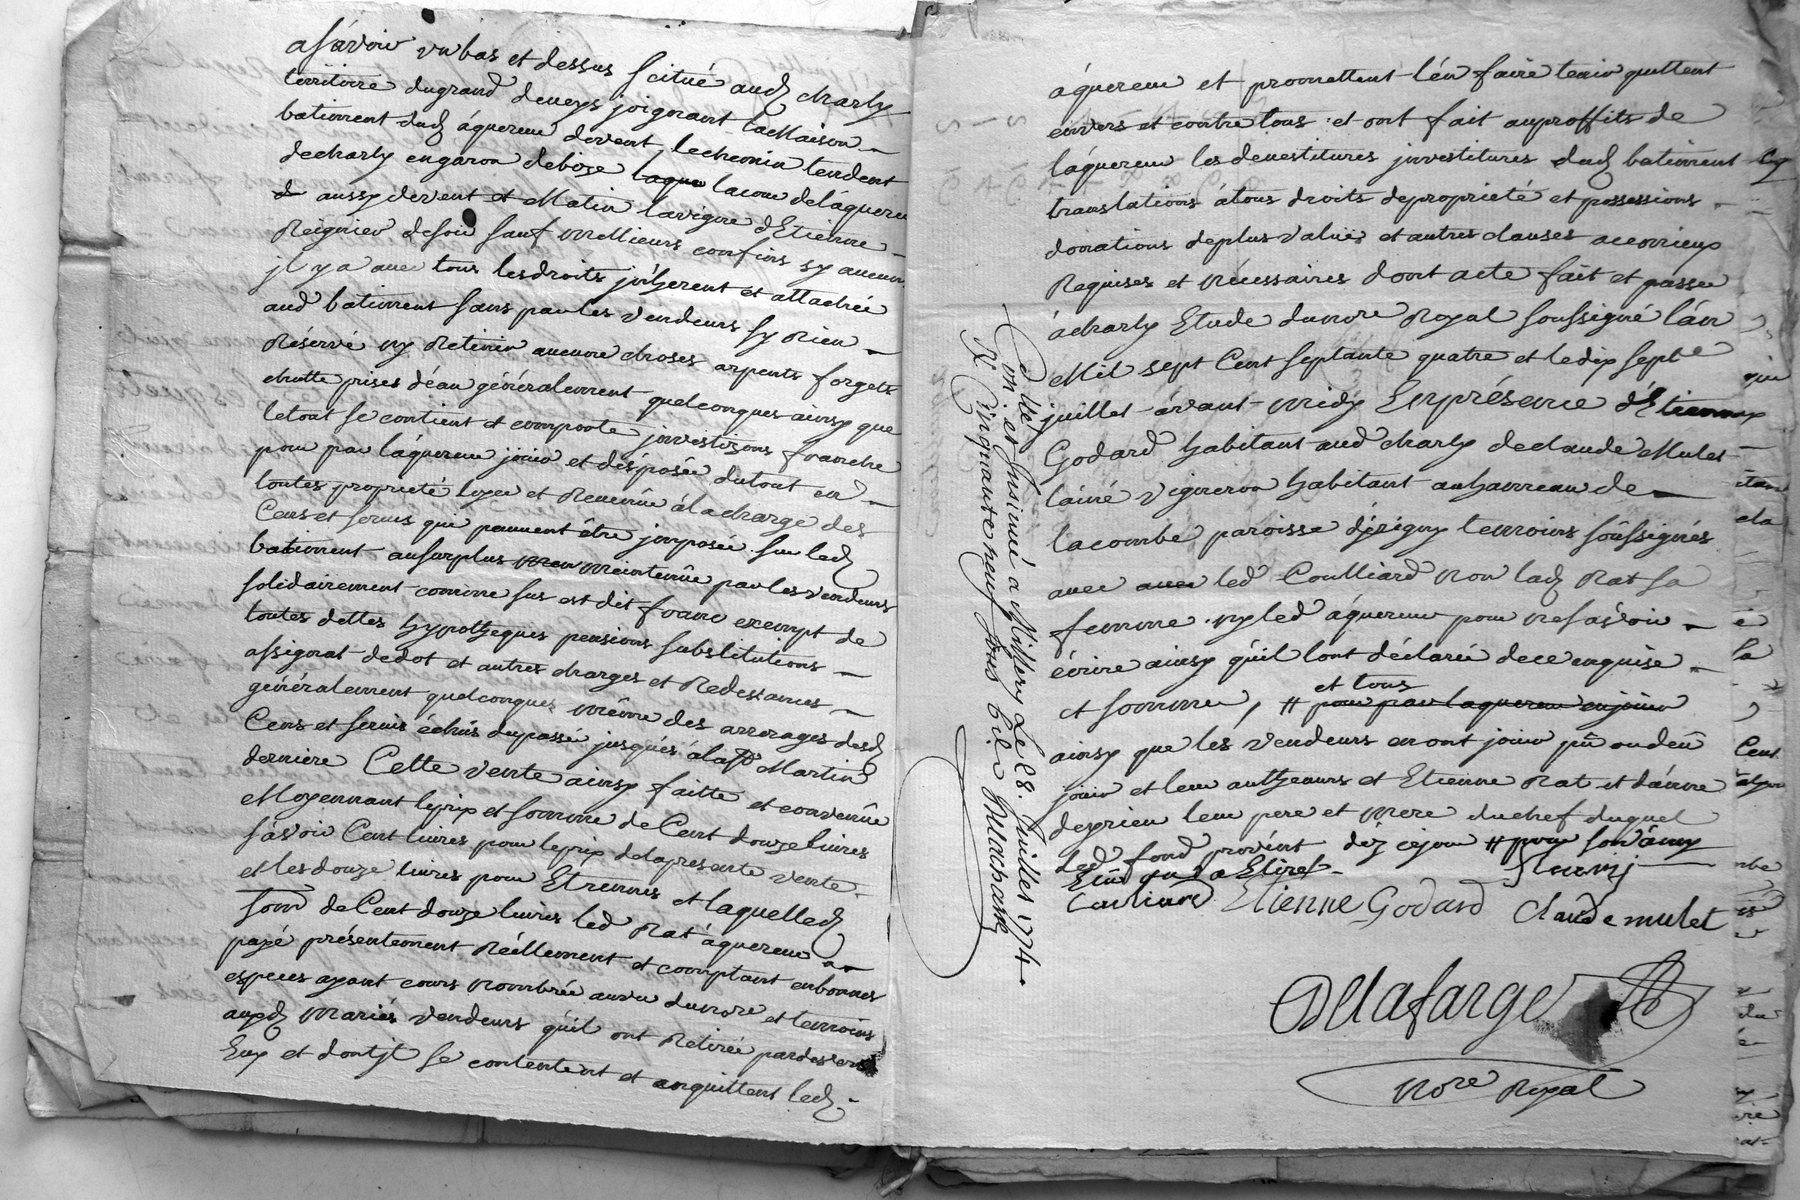 asávoir un bas et dessus scitué aud charly
territoire du grand deveys joignant la Maison
batiment dud áquereur devent le chemin tendent
de charly en garon de bize laque la cour de láquereur
& aussy devent et Matin la vigne d'Etienne
Reignier de soir sauf meillieurs confins sy aucun
jl y a avec tous les droits jnhérent et attachée
aud batiment sans par les vendeurs sy Rien
Réservé ny Retenir aucune choses arpents forgets
chutte prises d'éau généralement quelconques ainsy que
le tout se contient et comporte jnvestizons franche
pour par láquereur jouir et disposée du tout en
toutes proprieté loyer et Revenüe á la charge des
Cens et servis qui peuvent être jmposée sur led
batiment au surplus meintenüe par les vendeurs
solidairement comme sus est dit franc exempt de
toutes dettes hypotheques pensions substitutions
assignat de dot et autres charges et Redevances
généralement quelconques même des arrerages desd
Cens et servis échüs du passé jusques á la St Martin
derniere Cette vente ainsy faitte et convenüe
Moyennant le prix et somme de Cent douze livres
sávoir Cent livres pour le prix de la presente vente
et les douze livres pour Etrennes et laquelled
som̄e de Cent douze livres led Rat áquereur a
payé présentement Réellement et comptant en bonnes
especes ayant cours nombrée au vu du nore et temoins
auxd Mariés vendeurs qu'il ont Retirée pardevers
Eux et dont jl se contentent et en quittent led
áquereur et promettent lén faire tenir quittent
envers et contre tous et ont fait au proffits de
láquereur les devestitures jnvestitures dud batiment
translations á tous droits de proprieté et possessions
donations de plus values et autres clauses a ce mieux
Requises et nécessaires dont acte fait et passée
á charly Etude du nore Royal soussigné lán
Mil sept Cent septante quatre et le dix septe
juillet ávant midy En présence d'Etienne
Godard habitant aud charly de claude Mulet
lainé vigneron habitant au hameau de
la combe paroisse d'jrigny temoins soussignés
avec avec led Coulliard non lad Rat sa
femme ny led áquereur pour ne sávoir
écrire ainsy qu'il lont déclarée de ce enquise
et sommée, # et tous
pour par laquereur en jouir
ainsy que les vendeurs en ont jouir pû ou deû
jouir et leur autheaurs et Etienne Rat et d'ánne
leur pere et mere du chef duquel
led fond provient déz ce jour #
Couliard Etienne Godard Claude mulet
Dellafarge
Nore Royal
Conllé et Insinué a Millery Le 28. Juillet 1774.
R. Cinquante neuf sous